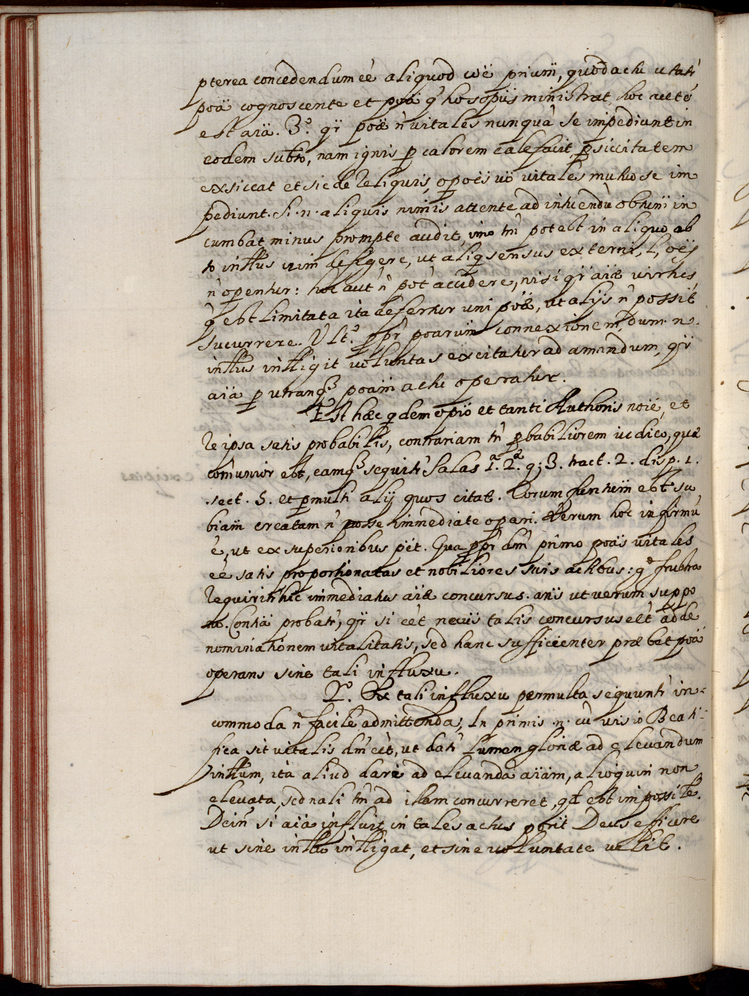 pterea concedendum ē aliquod coē prium̄, quod actu utatʳ
poā cognoscente et poā q̃ hos opiis ministrat hoc aūt
est aīa. 3.º qr̄ poæ n̄ vitales nunquā se impediunt in
eodem subto, nam ignis p calorem calefacit, p siccitatem
exsiccat et sic de reliquis, opoēs vo vitales multo se im
pediunt. Si .n. aliquis nimis attente ad intuendū obtum̄ in
cumbat minus prompte audit, imo tn̄ potest in aliquo ab
intus vim desigere, ut aliq sensus externi,
n̄ opentur: hoc aut n̄ pot accidere, nisi qr̄ aīæ virtus
q̃ est limitata ita defertur uni poæ, ut alijs n̄ possit
sucurrere. Ult.º ppr̄ poarum̄ connexionem, Dum .n.
intus intligit voluntas excitatur ad amandum, qr̄
aīa p utranq̃ poam̄ actu operatur.
Est hæc qdem opīo et tanti Authoris noīe, et
re ipsa satis probabilis, contrariam tn̄ pbabiliorem iudico, quæ
comunior est, eamq̃ sequitʳ Salas 1.ª 2.ª q. 3. tract. 2. disp. 1.
sect. 5. et pmulti alij quos citat. Eorum funtum̄ est su
biam creatam n̄ posse immediate opari. Verum hoc infirmū
ē, ut ex superioribus pēt. Qua ppr̄ dm̄ primo poas vitales
ēe satis proportionatas et nobiliores suis actibus: gº frustra
requiritʳ hic immediatus aīæ concursus. ans ut verum suppo
no. Contia probatʳ, qr̄ si eēt necius talis concursus eēt ad de
nominationem vitalitatis, sed hanc sufficienter præbet poā
operans sine tali influxu.
2.º Ex tali influxu permulta sequuntʳ in-
commoda n̄ facile admittenda, In primis .n. cū visio Beati-
fica sit vitalis dm̄ eēt, ut datʳ lumen gloriæ ad elevandum
intum, ita aliud dari ad elevandā aīam, alioquin non
elevata, sed nali tm̄ ad illam concurreret, qd est impossīle.
Dein si aīa influit in tales actus porit Deus efficere
ut sine intu intligat, et sine voluntate velit.